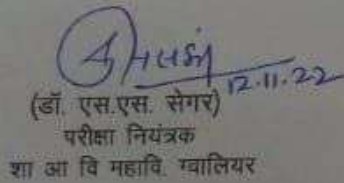 12.11.22
(डॉ. एस.एस. सेगर)
परीक्षा नियंत्रक
शा आ वि महावि. ग्वालियर